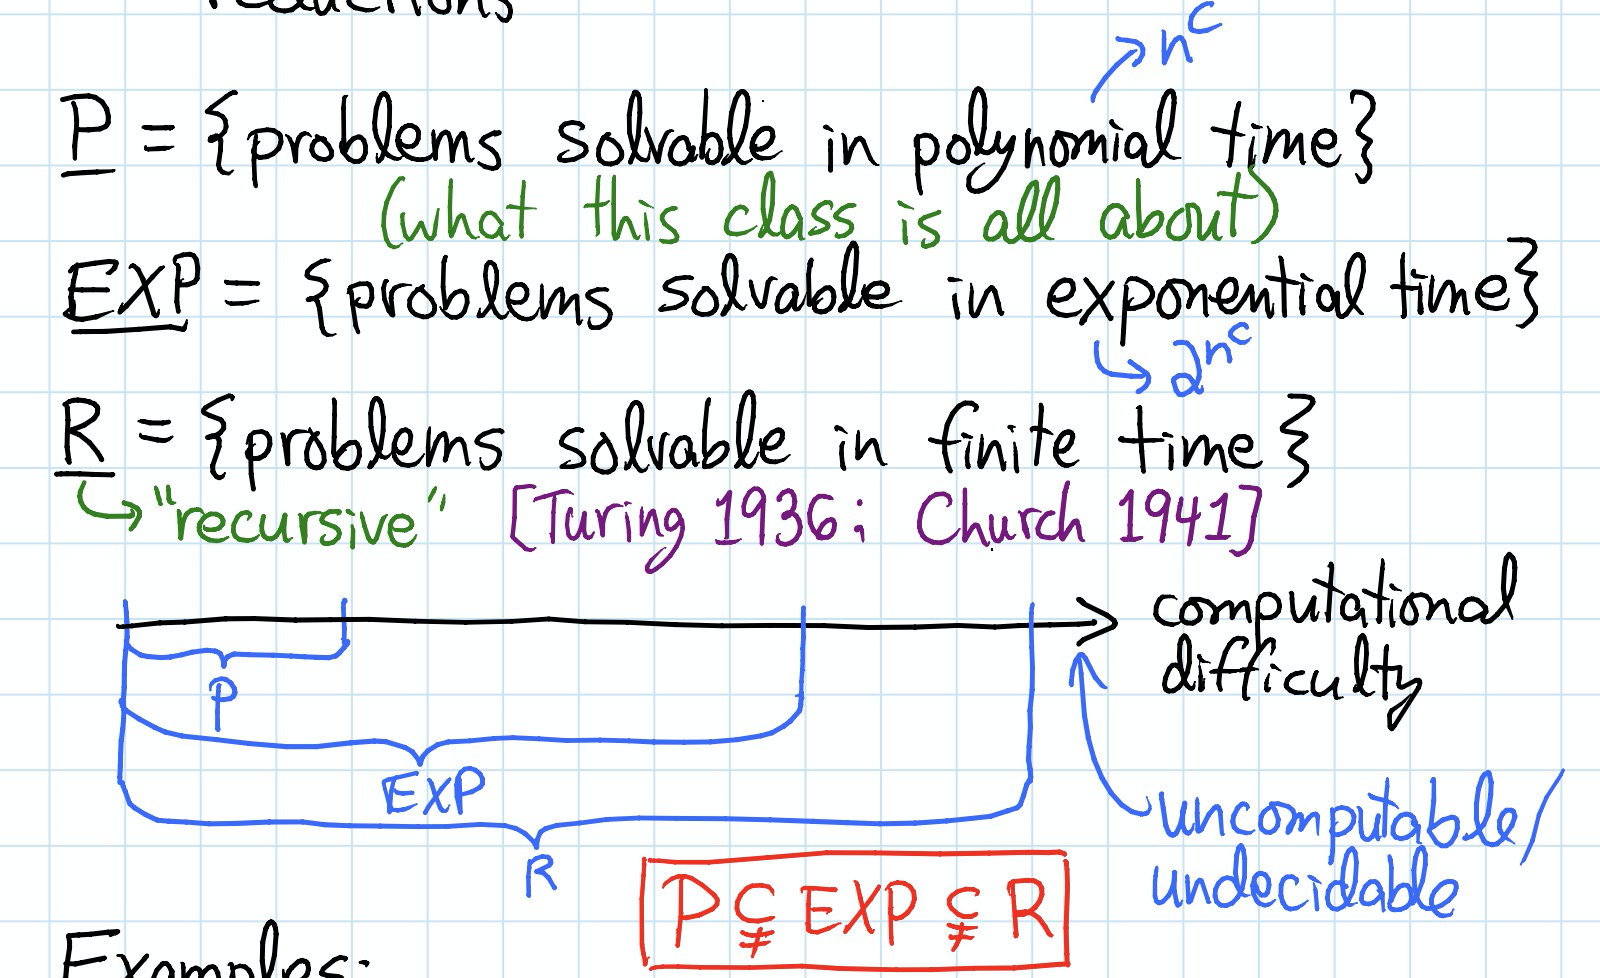 reductions
n^c
P = {problems solvable in polynomial time}
(what this class is all about)
EXP = {problems solvable in exponential time}
2^n^c
R = {problems solvable in finite time}
"recursive" [Turing 1936; Church 1941]
computational
difficulty
P
EXP
R
uncomputable/
undecidable
P ⊊ EXP ⊊ R
Examples: